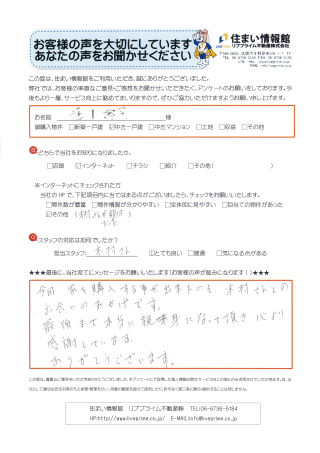 お客様の声を大切にしています
あなたの声をお聞かせください
住まい情報館
リブプライム不動産株式会社
この度は、住まい情報館をご利用いただき、誠にありがとうございました。
弊社では、お客様の率直なご意見・ご感想をお聞かせいただきたく、アンケートのお願いをしております。今
後もより一層、サービス向上に勤めてまいりますので、ぜひご協力いただけますようお願い申し上げます。
お名前 様
御購入物件 □新築一戸建 ☑中古一戸建 □中古マンション □土地 □収益 □その他
Q どちらで当社をお知りになりましたか。
□店頭 ☑インターネット □チラシ □紹介 □その他( )
※インターネットにチェックされた方
当社のHPで、下記項目内に当てはまる点がございましたら、チェックをお願いします。
□物件数が豊富 □物件情報が分かりやすい □全体的に見やすい □該当の物件があった
☑その他
Q スタッフの対応は如何でしたか?
担当スタッフ: 木村さん ☑とても良い □普通 □気になる点がある
★★★最後に、当社宛てにメッセージをお願いいたします!(お客様の声が励みになります!)★★★
今回 家を購入する事が出来たのも 木村さんとの
出会いのおかげです。
最後まで本当に親身になって頂き 心より
感謝しています。
ありがとうございます。
住まい情報館 リブプライム不動産㈱ TEL:06-6736-5184
HP:http://www.liveprime.co.jp/ E-MAIL:info@liveprime.co.jp